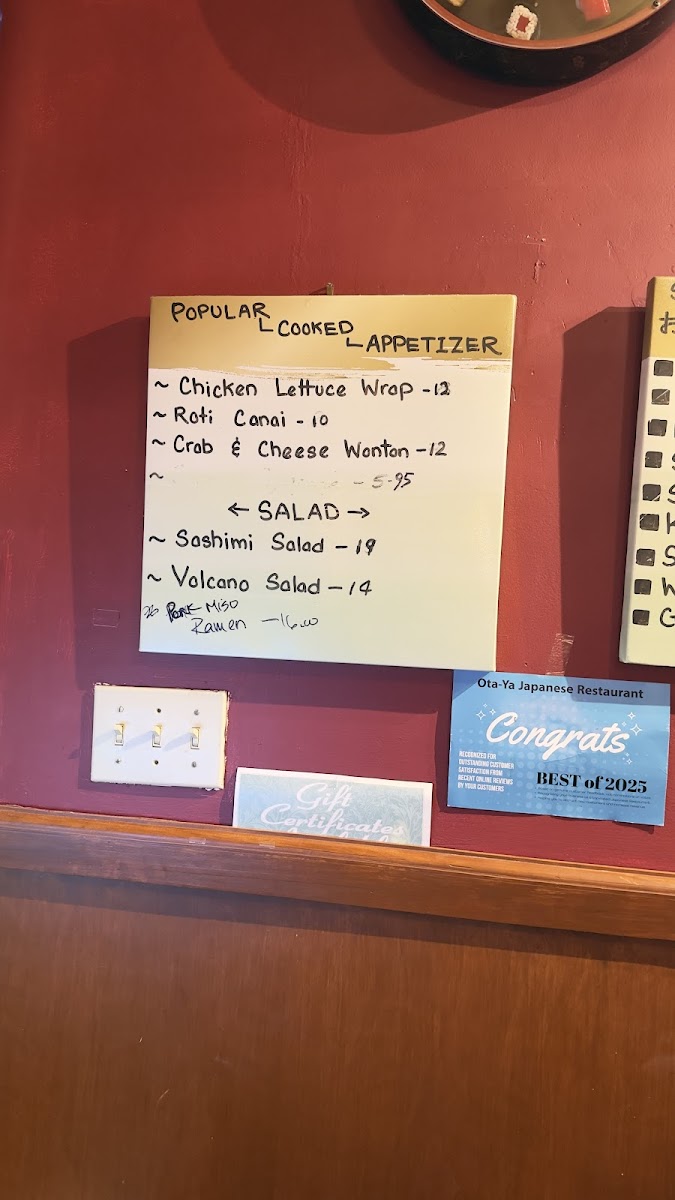 POPULAR
COOKED
APPETIZER
~ Chicken Lettuce Wrap -12
~ Roti Canai - 10
~ Crab & Cheese Wonton -12
~ - 5.95
← SALAD →
~ Sashimi Salad - 19
~ Volcano Salad - 14
Pork Miso
Ramen - 16.00
Ota-Ya Japanese Restaurant
Congrats
RECOGNIZED FOR
OUTSTANDING CUSTOMER
SATISFACTION FROM
RECENT ONLINE REVIEWS
BY YOUR CUSTOMERS
BEST of 2025
Gift
Certificates